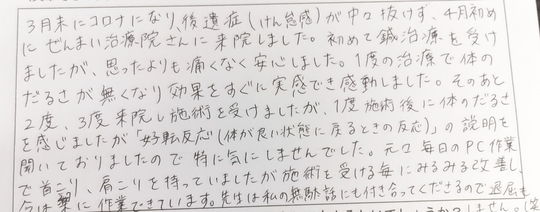 3月末にコロナになり、後遺症(けん怠感)が中々抜けず、4月初め
にぜんまい治療院さんに来院しました。初めて鍼治療を受け
ましたが、思ったよりも痛くなく安心しました。1度の治療で体の
だるさが無くなり効果をすぐに実感でき感動しました。そのあと
2度、3度来院し施術を受けましたが、1度施術後に体のだるさ
を感じましたが「好転反応(体が良い状態に戻るときの反応)」の説明を
聞いておりましたので特に気にしませんでした。元々毎日のPC作業
で首こり、肩こりを持っていましたが施術を受ける毎にみるみる改善し、
今は楽に作業できています。先生は私の無駄話にも付き合ってくださるので退屈も
しません。(笑